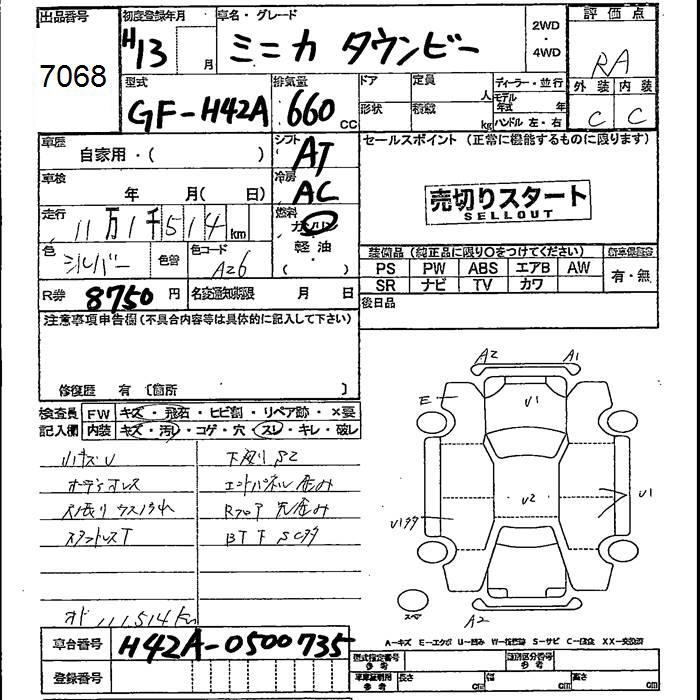 出品番号 初度登録年月 車名・グレード 2WD・4WD 評価点
7068 H13 月 ミニカ タウンビー RA
型式 排気量 ドア 定員 ディーラー・並行 外装 内装
GF-H42A 660 CC 形状 積載 人 kg モデル年式 年 ハンドル 左・右 C C
車歴 自家用・( ) シフト AT セールスポイント (正常に機能するものに限ります)
車検 年 月( 日) 冷房 AC
売切りスタート
SELLOUT
走行 11万1千514km 燃料 ガソリン
色 シルバー 色替 色コード AZ6 軽油 ( )
装備品 (純正品に限り○をつけてください) 新車保証書
PS PW ABS エアB AW 有・無
SR ナビ TV カワ
R券 8750円 名変通知期限 月 日 後日品
注意事項申告欄 (不具合内容等は具体的に記入して下さい)
修復歴 有 〔箇所 〕
検査員 FW キズ・飛石・ヒビ割・リペア跡・×要
記入欄 内装 キズ・汚れ・コゲ・穴・スレ・キレ・破レ
小キズU
下廻りS2
オーディオレス
スタットレスT
オド 111,514km
A2 A1
E U1
U2 U1
スペア A2
A-キズ E-エクボ U-凹み W-補修跡 S-サビ C-腐食 XX-交換済
車台番号 H42A-0500735
登録番号
型式指定番号 参考 類別区分番号 参考
車庫証明用 参考 長さ cm 幅 cm 高さ cm